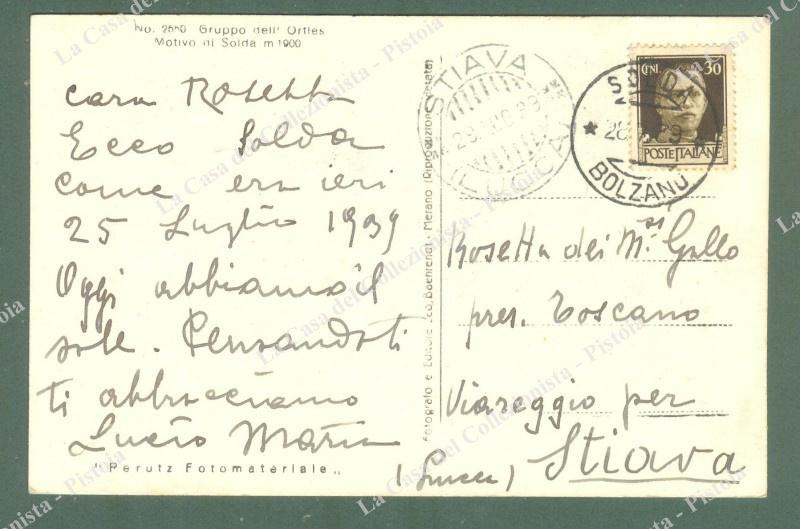 No. 2580 Gruppo dell' Ortles
Motivo di Solda m 1900
cara Rosetta
Ecco Solda
come era ieri
25 Luglio 1939
Oggi abbiamo il
sole. Pensandoti
ti abbracciamo
Lucio Maria
"Perutz Fotomateriale"
Fotografo e Editore Leo Baehrendt, Merano (Riproduzione vietata)
STIAVA
LUCCA
CENT 30
POSTE ITALIANE
SOLDA
BOLZANO
Rosetta dei M.si Gallo
pres. Toscano
Viareggio per
Stiava
(Lucca)
La Casa del Collezionista - Pistoia